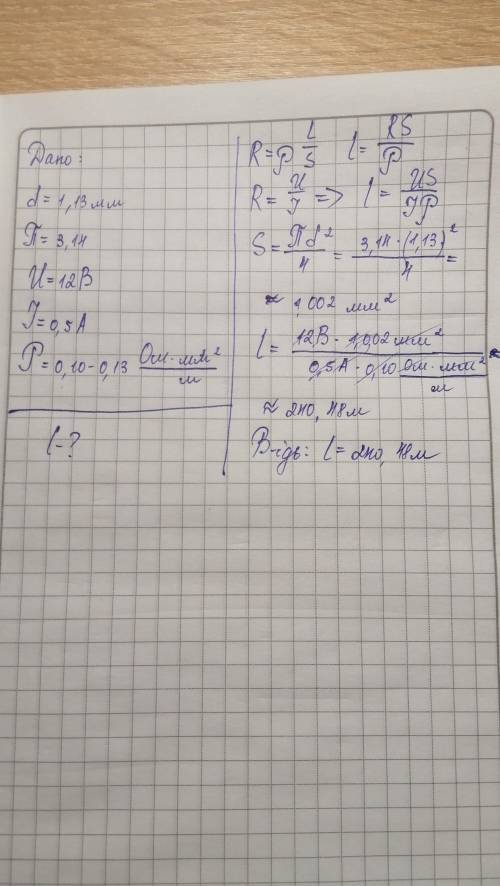 Дано:
d = 1,13 мм
П = 3,14
U = 12В
I = 0,5 А
P = 0,10 - 0,13 Ом · мм² / м
l - ?
R = P l/S   l = RS/P
R = U/I => l = US/IP
S = Пd²/4 = 3,14 · (1,13)²/4 =
≈ 1,002 мм²
l = 12В · 1,002 мм² / 0,5 А · 0,10 Ом · мм²/м ≈
≈ 240,48м
В-ідь: l = 240,48м